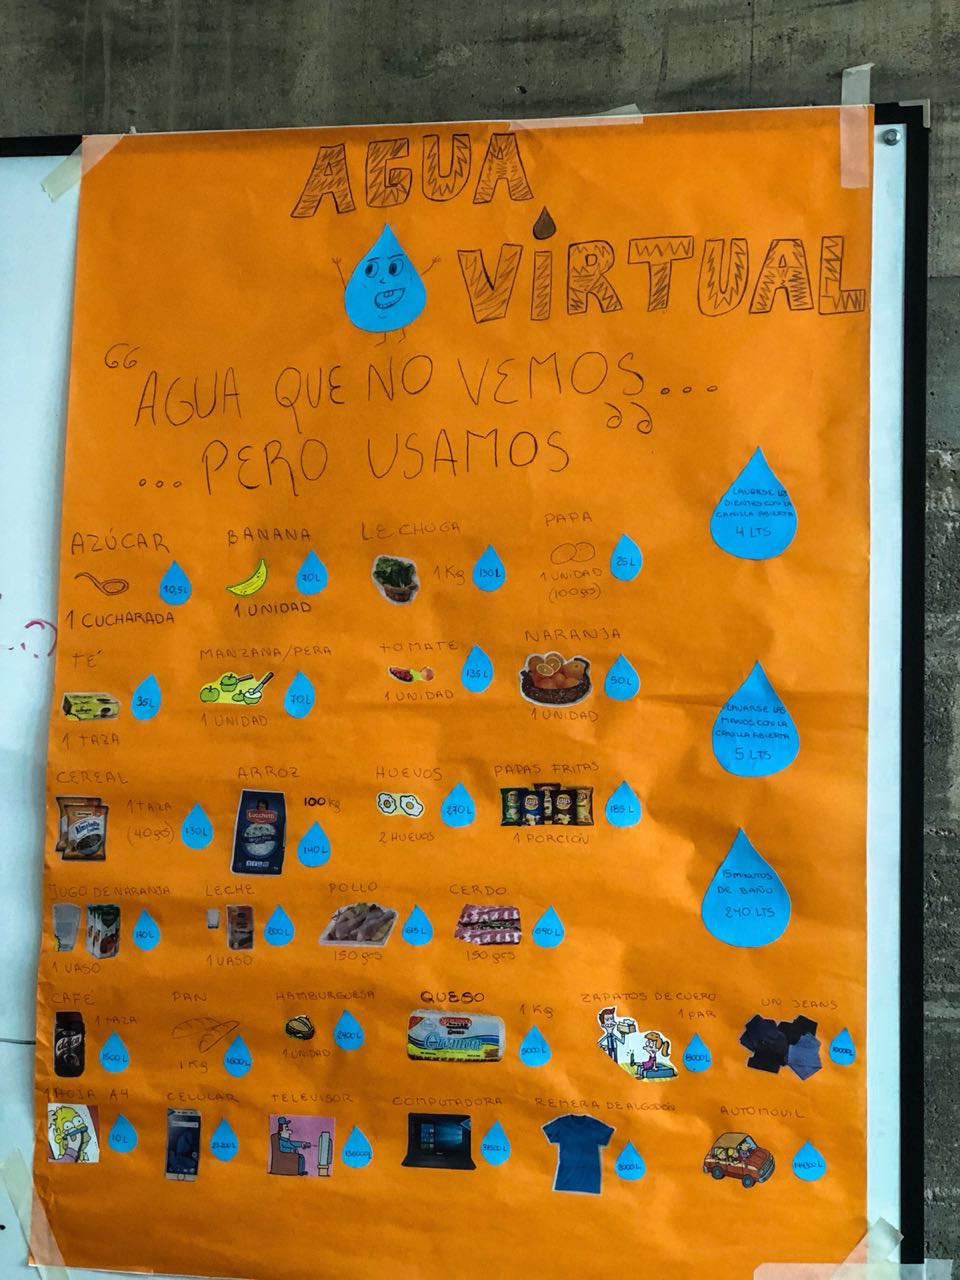 AGUA
VIRTUAL
“AGUA QUE NO VEMOS...
...PERO USAMOS”
LAVARSE LOS
DIENTES CON LA
CANILLA ABIERTA
4 LTS
AZÚCAR
10,5L
1 CUCHARADA
BANANA
70L
1 UNIDAD
LECHUGA
1 Kg
130L
PAPA
25L
1 UNIDAD
(100grs)
TÉ
35L
1 TAZA
MANZANA/PERA
70L
1 UNIDAD
TOMATE
135L
1 UNIDAD
NARANJA
50L
1 UNIDAD
LAVARSE LAS
MANOS CON LA
CANILLA ABIERTA
5 LTS
CEREAL
1 TAZA
(40grs)
130L
ARROZ
100 kg
Lucchetti
140L
HUEVOS
270L
2 HUEVOS
PAPAS FRITAS
185L
1 PORCIÓN
15 MINUTOS
DE BAÑO
240 LTS
JUGO DE NARANJA
170L
1 VASO
LECHE
200L
1 VASO
POLLO
615L
150 grs
CERDO
690L
150 grs
CAFÉ
1 TAZA
1500L
PAN
1 Kg
1600L
HAMBURGUESA
1 UNIDAD
2400L
QUESO
1 Kg
Cremón
5000L
ZAPATOS DE CUERO
1 PAR
8000L
UN JEANS
10000L
1 HOJA A4
10L
CELULAR
TELEVISOR
COMPUTADORA
31500L
REMERA DE ALGODÓN
2000L
AUTOMÓVIL